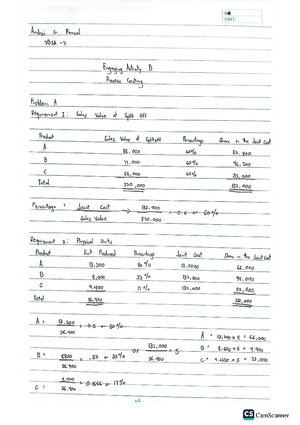 NO.
DATE:
Andrei G. Pascal
2BSA - 2
Engaging Activity B
Process Costing
Problem A
Requirement 1: Sales Value at Split Off
Product Sales Value at Splitoff Percentage Share in the Joint Cost
A 88,000 60% 52,800
B 77,000 60% 46,200
C 55,000 60% 33,000
Total 220,000 132,000
Percentage = Joint Cost → 132,000 = 0.6 or 60%
Sales Value 220,000
Requirement 2: Physical Units
Product Unit Produced Percentage Joint Cost Share in the Joint Cost
A 13,200 50% 132,000 66,000
B 8,800 33% 132,000 44,000
C 4,400 17% 132,000 22,000
Total 26,400 132,000
A = 13,200 = 0.5 or 50%
26,400
B = 8800 = .33 or 33% or 132,000 = 5
26,400 26,400
C = 4,400 = 0.1666 or 17%
26,400
A = 13,200 x 5 = 66,000
B = 8,800 x 5 = 44,000
C = 4,400 x 5 = 22,000
CS CamScanner